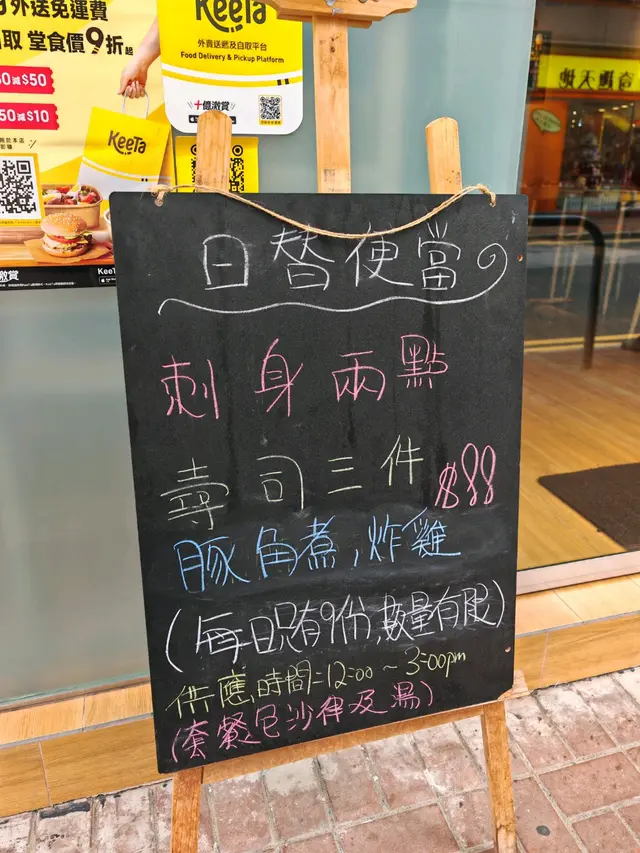 外送免運費
堂食價9折起
減$50
50減$10
KeeTa
KeeTa
外賣送遞及自取平台
Food Delivery & Pickup Platform
十億激賞
日替便當
刺身兩點
壽司三件 $88
豚角煮,炸雞
(每日只有9份,數量有限)
供應時間=12:00~3:00pm
(套餐包沙律及湯)